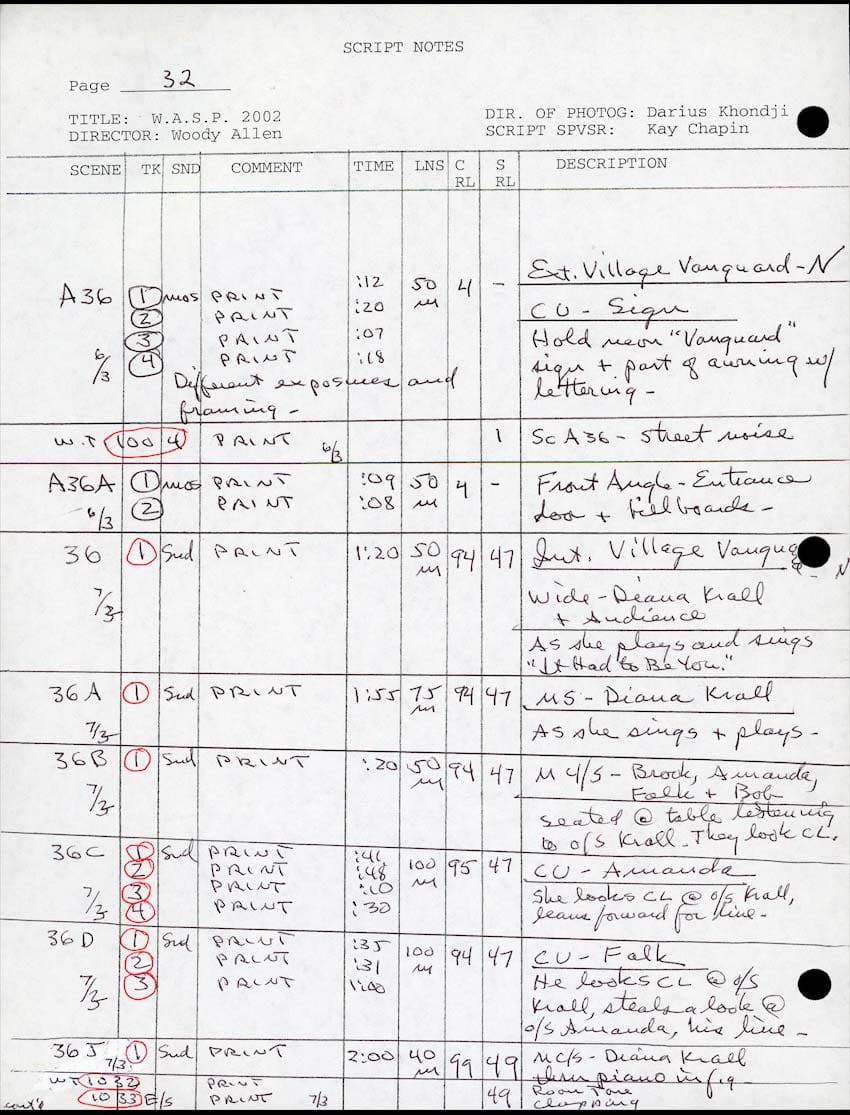 SCRIPT NOTES
Page 32
TITLE: W.A.S.P. 2002
DIRECTOR: Woody Allen
DIR. OF PHOTOG: Darius Khondji
SCRIPT SPVSR: Kay Chapin
SCENE TK SND COMMENT TIME LNS C RL S RL DESCRIPTION
Ext. Village Vanguard-N
A36 1 MOS PRINT :12 50 M 4 - CU - Sign
2 PRINT :20
3 PRINT :07 Hold neon "Vanguard"
6/3 4 PRINT :18 sign + part of awning w/
lettering -
Different exposures and
framing -
W.T 1004 PRINT 6/3 1 Sc A36 - Street noise
A36A 1 MOS PRINT :09 50 M 4 - Front Angle - Entrance
6/3 2 PRINT :08 door + billboards -
36 1 Snd PRINT 1:20 50 M 94 47 Int. Village - N
7/3 Wide - Diana Krall
+ Audience
As she plays and sings
"It Had to Be You."
36A 1 Snd PRINT 1:55 75 M 94 47 MS - Diana Krall
7/3 As she sings + plays -
36B 1 Snd PRINT :20 50 M 94 47 M 4/S - Brook, Amanda,
Falk + Bob
7/3 seated @ table listening
to o/s Krall. They look CL.
36C 1 Snd PRINT :41 100 M 95 47 CU - Amanda
2 PRINT :48
3 PRINT :10 She looks CL @ o/s Krall,
7/3 4 PRINT :30 leans forward for line -
36D 1 Snd PRINT :35 100 M 94 47 CU - Falk
2 PRINT :31 He looks CL @ o/s
7/3 3 PRINT 1:00 Krall, steals a look @
o/s Amanda, his line -
36J 7/3 1 Snd PRINT 2:00 40 M 99 49 MC/S - Diana Krall
thru piano in f.g.
WT 1032 PRINT Room Tone
1033 E/S PRINT 7/3 49 Clapping
cont'd